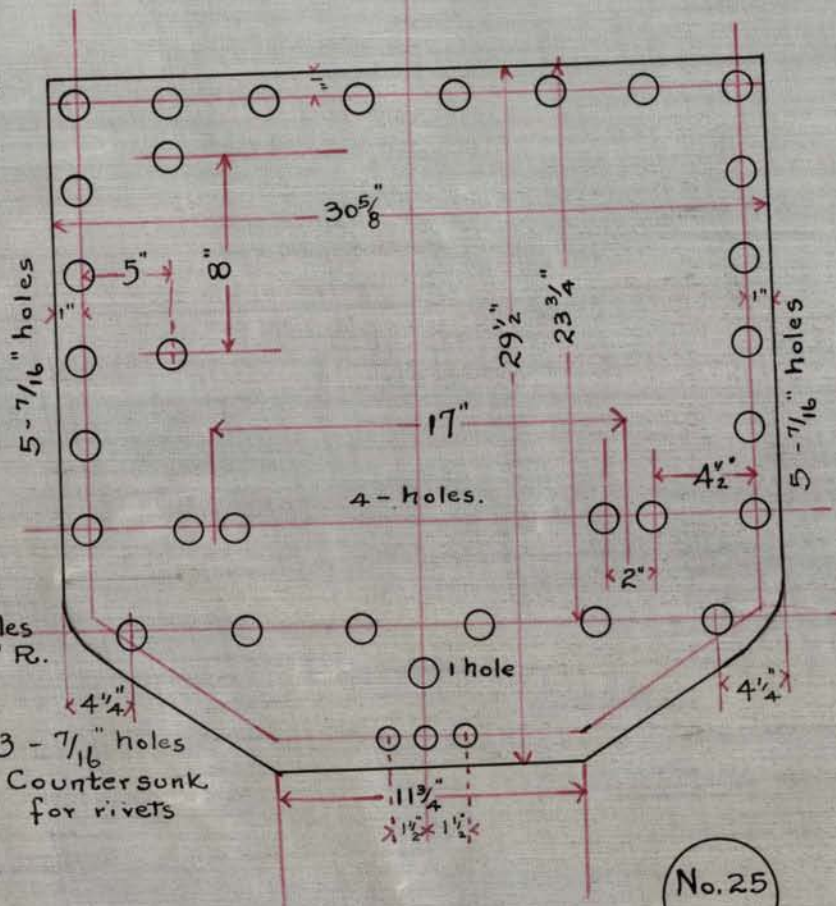 1"
30 5/8"
5"
8"
1"
1"
5 - 7/16" holes
29 1/2"
23 3/4"
5 - 7/16" holes
17"
4 - holes.
4 1/2"
2"
R.
1 hole
4 1/4"
4 1/4"
3 - 7/16" holes
Countersunk
for rivets
11 3/4"
1 1/2" 1 1/2"
No. 25